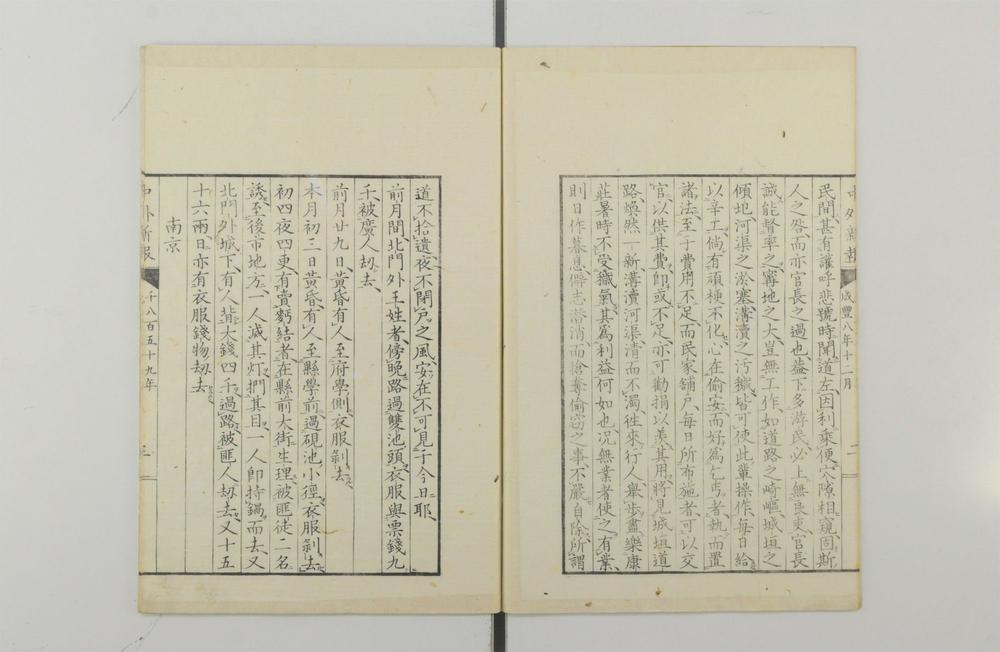 中外新報 咸豐八年十二月 二
民間甚有讙呼悲號時聞道左因利乘便穴隙相窺固斯
人之咎而亦官長之過也蓋下多游民必上無良吏官長
誠能督率之寗地之大豈無工作如道路之崎嶇城垣之
傾圮河渠之淤塞溝瀆之汚穢皆可使此輩操作每日給
以辛工倘有頑梗不化心在偷安而好爲乞丐者執而置
諸法至于費用不足而民家舖戶每日所布施者可以交
官以供其費卽或不足亦可勸捐以羨其用將見城垣道
路煥然一新溝瀆河渠清而不濁徃來行人舉步盡樂康
莊暑時不受穢氣其爲利益何如也况無業者使之有業
則日作暮息僻志潛消而搶奪偷窃之事不嚴自除所謂
道不拾遺夜不閉戶之風安在不可見于今日耶
前月間北門外王姓者傍晩路過雙池頭衣服與票錢九
千被黨人刼去
前月廿九日黃昏有人至府學側衣服剝去
本月初三日黃昏有人至縣學前過硯池小徑衣服剝去
初四夜四更有賣麪結者在縣前大街生理被匪徒二名
誘至後市地方一人滅其灯捫其目一人卽持鍋而去又
北門外城下有人揹大錢四千過路被匪人刼去又十五
十六兩日亦有衣服錢物刼去
南京
中外新報 千八百五十九年 三